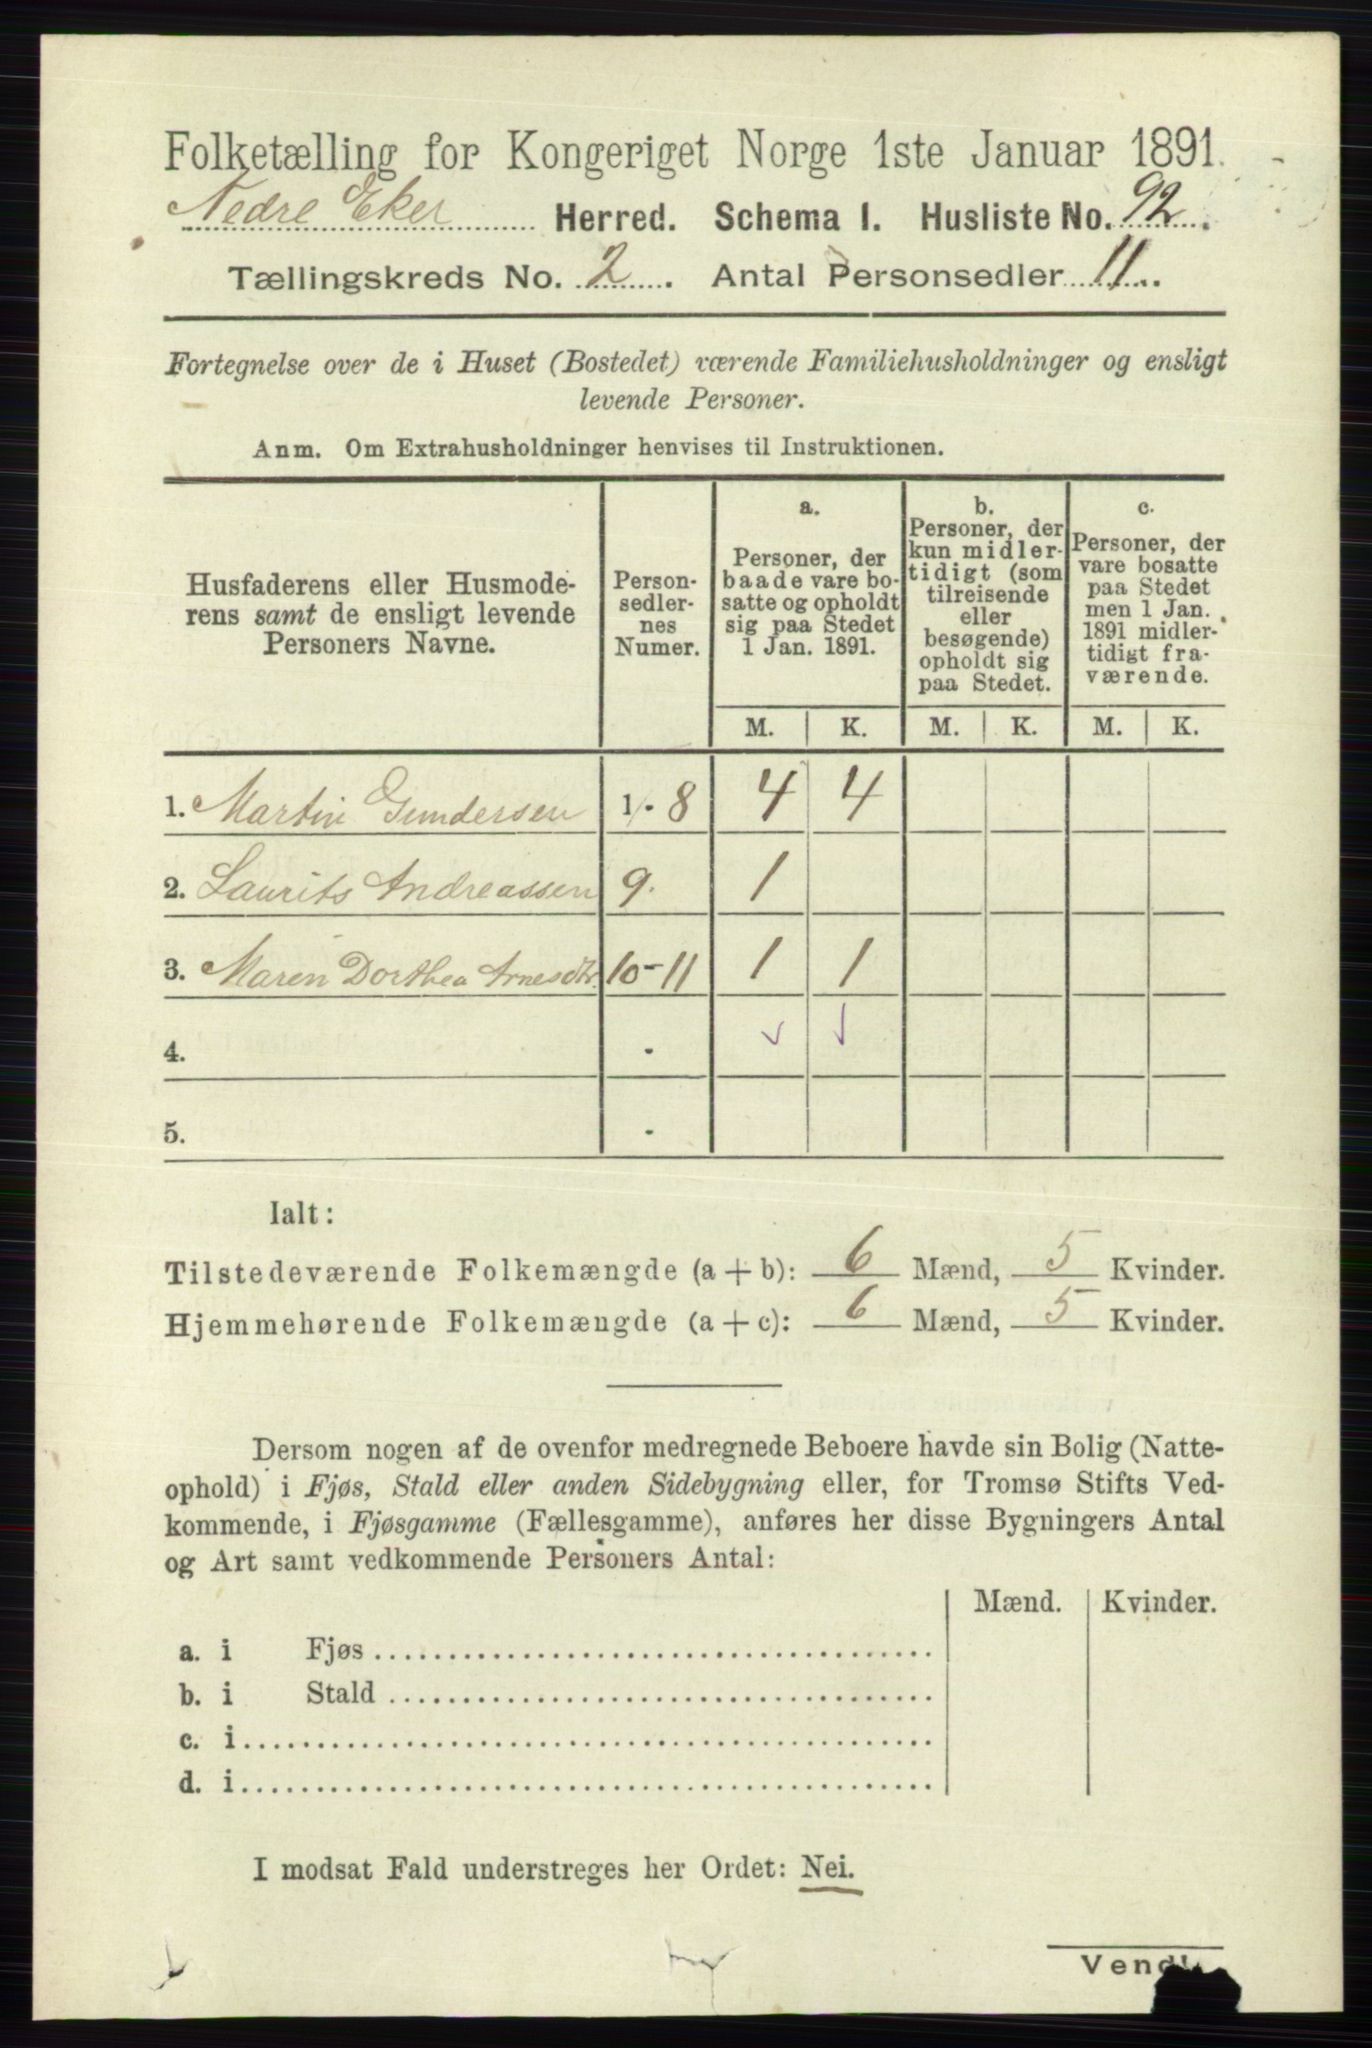 Folketælling for Kongeriget Norge 1ste Januar 1891.
Nedre Eker Herred. Schema I. Husliste No. 92.
Tællingskreds No. 2. Antal Personsedler 11.
Fortegnelse over de i Huset (Bostedet) værende Familiehusholdninger og ensligt
levende Personer.
Anm. Om Extrahusholdninger henvises til Instruktionen.
Husfaderens eller Husmode-
rens samt de ensligt levende
Personers Navne.
Person-
sedler-
nes
Numer.
a.
Personer, der
baade vare bo-
satte og opholdt
sig paa Stedet
1 Jan. 1891.
b.
Personer, der
kun midler-
tidigt (som
tilreisende
eller
besøgende)
opholdt sig
paa Stedet.
c.
Personer, der
vare bosatte
paa Stedet
men 1 Jan.
1891 midler-
tidigt fra-
værende.
M. K. M. K. M. K.
1. Martin Gundersen 1 - 8 4 4
2. Laurits Andreassen 9. 1
3. Maren Dorthea Arnesdtr. 10-11 1 1
4. -
5. -
Ialt:
Tilstedeværende Folkemængde (a + b): 6 Mænd, 5 Kvinder.
Hjemmehørende Folkemængde (a + c): 6 Mænd, 5 Kvinder.
Dersom nogen af de ovenfor medregnede Beboere havde sin Bolig (Natte-
ophold) i Fjøs, Stald eller anden Sidebygning eller, for Tromsø Stifts Ved-
kommende, i Fjøsgamme (Fællesgamme), anføres her disse Bygningers Antal
og Art samt vedkommende Personers Antal:
Mænd. Kvinder.
a. i Fjøs
b. i Stald
c. i
d. i
I modsat Fald understreges her Ordet: Nei.
Vend!